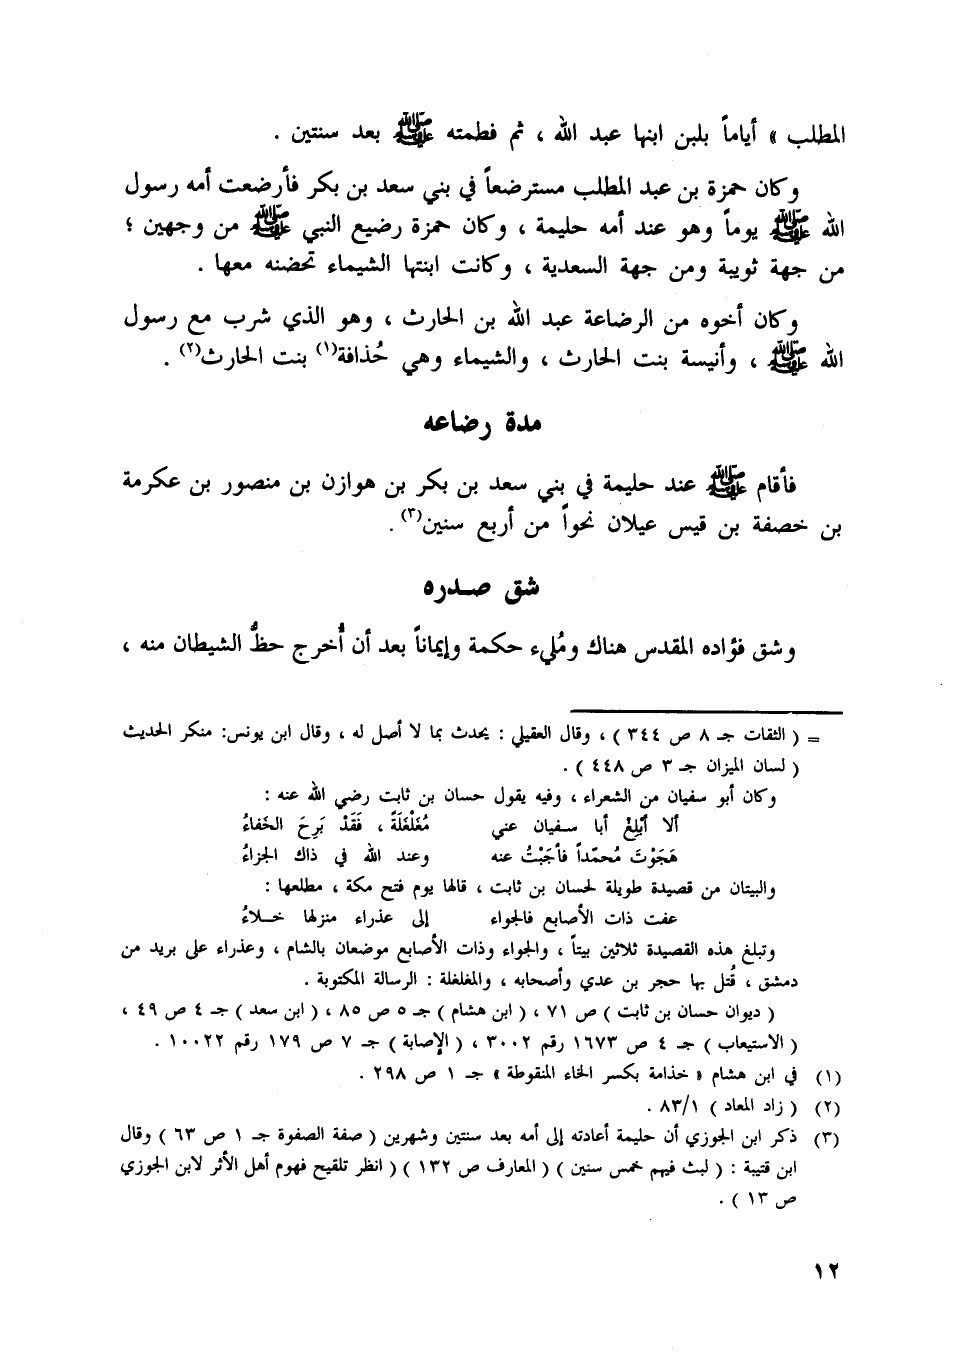 المطلب » أياماً بلبن ابنها عبد الله ، ثم فطمته ﷺ بعد سنتين .
وكان حمزة بن عبد المطلب مسترضعاً في بني سعد بن بكر فأرضعت أمه رسول
الله ﷺ يوماً وهو عند أمه حليمة ، وكان حمزة رضيع النبي ﷺ من وجهين ؛
من جهة ثويبة ومن جهة السعدية ، وكانت ابنتها الشيماء تحضنه معها .
وكان أخوه من الرضاعة عبد الله بن الحارث ، وهو الذي شرب مع رسول
الله ﷺ ، وأنيسة بنت الحارث ، والشيماء وهي حُذافة(١) بنت الحارث(٢) .
مدة رضاعه
فأقام ﷺ عند حليمة في بني سعد بن بكر بن هوازن بن منصور بن عكرمة
بن خصفة بن قيس عيلان نحواً من أربع سنين(٣) .
شق صدره
وشق فؤاده المقدس هناك ومُليء حكمة وإيماناً بعد أن أُخرج حظُّ الشيطان منه ،
= ( الثقات جـ ٨ ص ٣٤٤ ) ، وقال العقيلي : يحدث بما لا أصل له ، وقال ابن يونس: منكر الحديث
( لسان الميزان جـ ٣ ص ٤٤٨ ) .
وكان أبو سفيان من الشعراء ، وفيه يقول حسان بن ثابت رضي الله عنه :
ألا أَبْلِغْ أبا سـفيان عني مُغَلْغَلَةً ، فَقَدْ بَرِحَ الخَفاءُ
هَجَوْتَ مُحمّداً فأجَبْتُ عنه وعند الله في ذاك الجزاءُ
والبيتان من قصيدة طويلة لحسان بن ثابت ، قالها يوم فتح مكة ، مطلعها :
عفت ذات الأصابع فالجواء إلى عذراء منزلها خـلاءُ
وتبلغ هذه القصيدة ثلاثين بيتاً ، والجواء وذات الأصابع موضعان بالشام ، وعذراء على بريد من
دمشق ، قُتل بها حجر بن عدي وأصحابه ، والمغلغلة : الرسالة المكتوبة .
( ديوان حسان بن ثابت ) ص ٧١ ، ( ابن هشام ) جـ ٥ ص ٨٥ ، ( ابن سعد ) جـ ٤ ص ٤٩ ،
( الاستيعاب ) جـ ٤ ص ١٦٧٣ رقم ٣٠٠٢ ، ( الإصابة ) جـ ٧ ص ١٧٩ رقم ١٠٠٢٢ .
(١) في ابن هشام « خذامة بكسر الخاء المنقوطة » جـ ١ ص ٢٩٨ .
(٢) ( زاد المعاد ) ٨٣/١ .
(٣) ذكر ابن الجوزي أن حليمة أعادته إلى أمه بعد سنتين وشهرين ( صفة الصفوة جـ ١ ص ٦٣ ) وقال
ابن قتيبة : ( لبث فيهم خمس سنين ) ( المعارف ص ١٣٢ ) ( انظر تلقيح فهوم أهل الأثر لابن الجوزي
ص ١٣ ) .
١٢